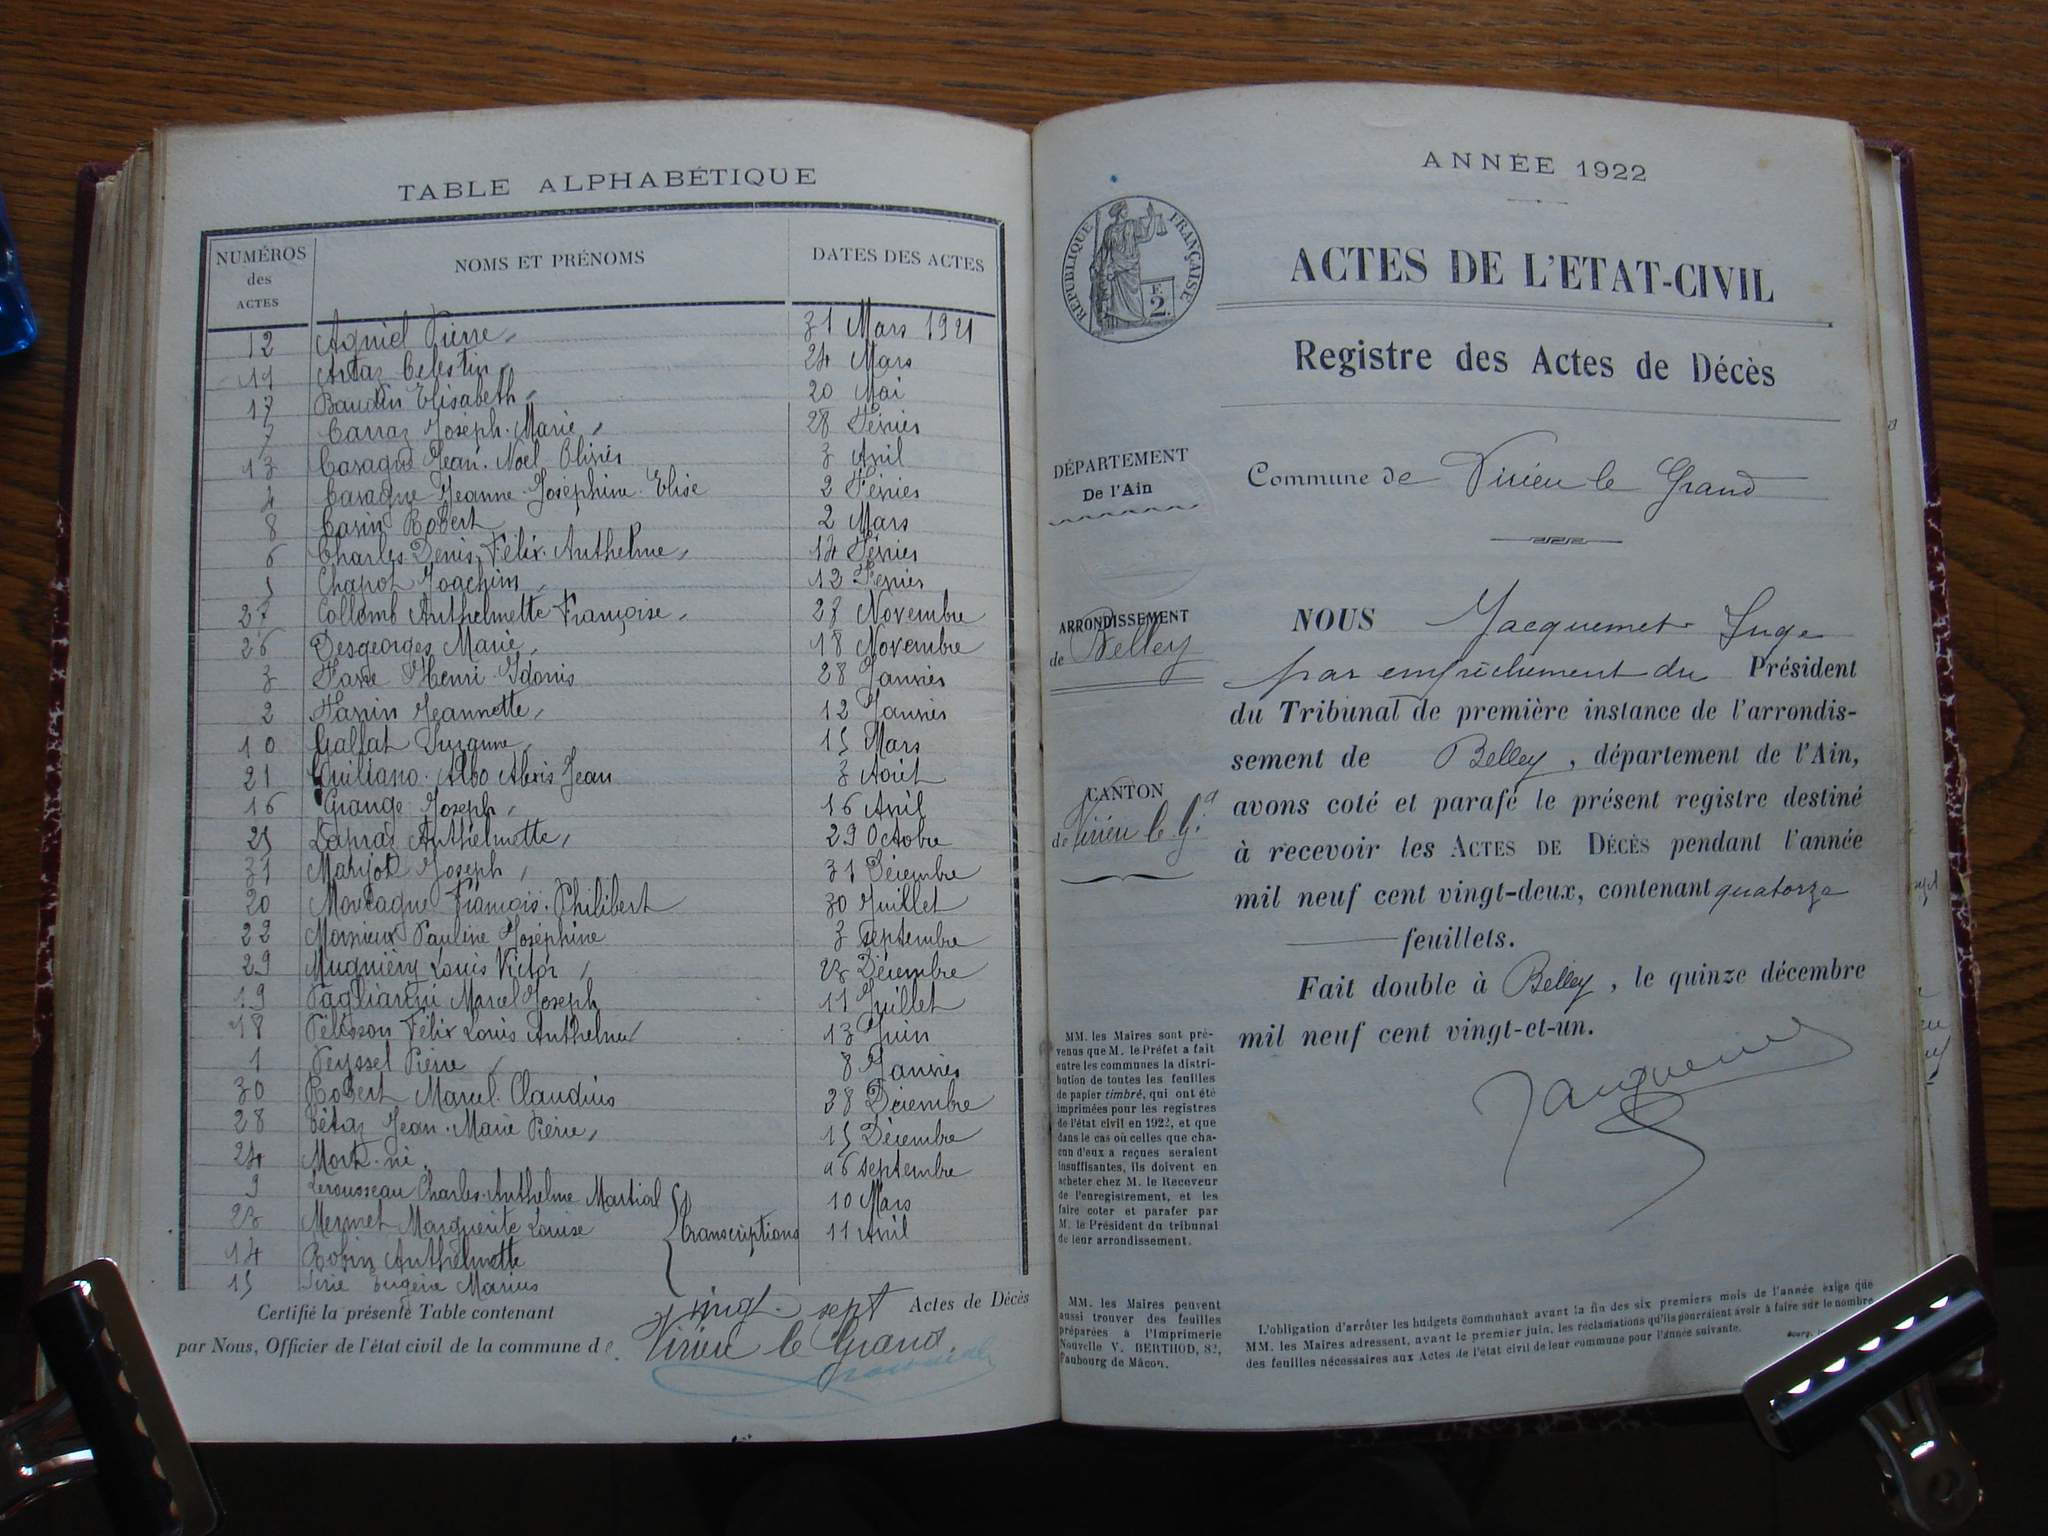 TABLE ALPHABÉTIQUE
NUMÉROS des ACTES NOMS ET PRÉNOMS DATES DES ACTES
12 Agniel Pierre 31 Mars 1921
Artaz Celestin 24 Mars
17 Baudin Elisabeth 20 Mai
7 Carraz Joseph Marie 28 Février
13 Jean Noel Olivier 3 Avril
4 Jeanne Joséphine Elise 2 Février
8 Robert 2 Mars
6 Charles Denis Félix Anthelme 14 Février
5 Chapot Joachim 12 Février
27 Collomb Anthelmette Françoise 27 Novembre
26 Desgeorges Marie 18 Novembre
3 Henri 28 Janvier
2 Jeannette 12 Janvier
10 Suzanne 15 Mars
21 Albo Alexis Jean 3 Août
16 Grange Joseph 16 Avril
25 Lapraz Anthelmette 29 Octobre
31 Joseph 31 Décembre
20 François Philibert 30 Juillet
22 Pauline Joséphine 3 septembre
29 Mugniéry Louis Victor 23 Décembre
19 Marcel Joseph 11 Juillet
18 Pélisson Félix Louis Anthelme 13 Juin
1 Peyssel Pierre 8 Janvier
30 Robert Marcel Claudius 28 Décembre
28 Tétaz Jean Marie Pierre 15 Décembre
24 Mort-né 26 septembre
9 Lerousseau Charles Anthelme Martial 10 Mars
23 Mermet Marguerite Louise transcriptions 11 Avril
14 Robin Anthelmette
15 Eugène Marius
Certifié la présente Table contenant vingt-sept Actes de Décès
par Nous, Officier de l'état civil de la commune de Virieu le Grand.
ANNÉE 1922
RÉPUBLIQUE FRANÇAISE
F. 2.
ACTES DE L'ETAT-CIVIL
Registre des Actes de Décès
DÉPARTEMENT
De l'Ain
Commune de Virieu le Grand
ARRONDISSEMENT
de Belley
CANTON
de Virieu le Gd
NOUS Jacquemet Juge
par empêchement du Président
du Tribunal de première instance de l'arrondis-
sement de Belley, département de l'Ain,
avons coté et parafé le présent registre destiné
à recevoir les ACTES DE DÉCÈS pendant l'année
mil neuf cent vingt-deux, contenant quatorze
feuillets.
Fait double à Belley, le quinze décembre
mil neuf cent vingt-et-un.
Jacquemet
MM. les Maires sont pré-
venus que M. le Préfet a fait
entre les communes la distri-
bution de toutes les feuilles
de papier timbré, qui ont été
imprimées pour les registres
de l'état civil en 1922, et que
dans le cas où celles que cha-
cun d'eux a reçues seraient
insuffisantes, ils doivent en
acheter chez M. le Receveur
de l'enregistrement, et les
faire coter et parafer par
M. le Président du tribunal
de leur arrondissement.
MM. les Maires peuvent
aussi trouver des feuilles
préparées à l'Imprimerie
Nouvelle V. BERTHOD, 82,
Faubourg de Mâcon.
L'obligation d'arrêter les budgets communaux avant la fin des six premiers mois de l'année exige que
MM. les Maires adressent, avant le premier juin, les réclamations qu'ils pourraient avoir à faire sur le nombre
des feuilles nécessaires aux Actes de l'état civil de leur commune pour l'année suivante.